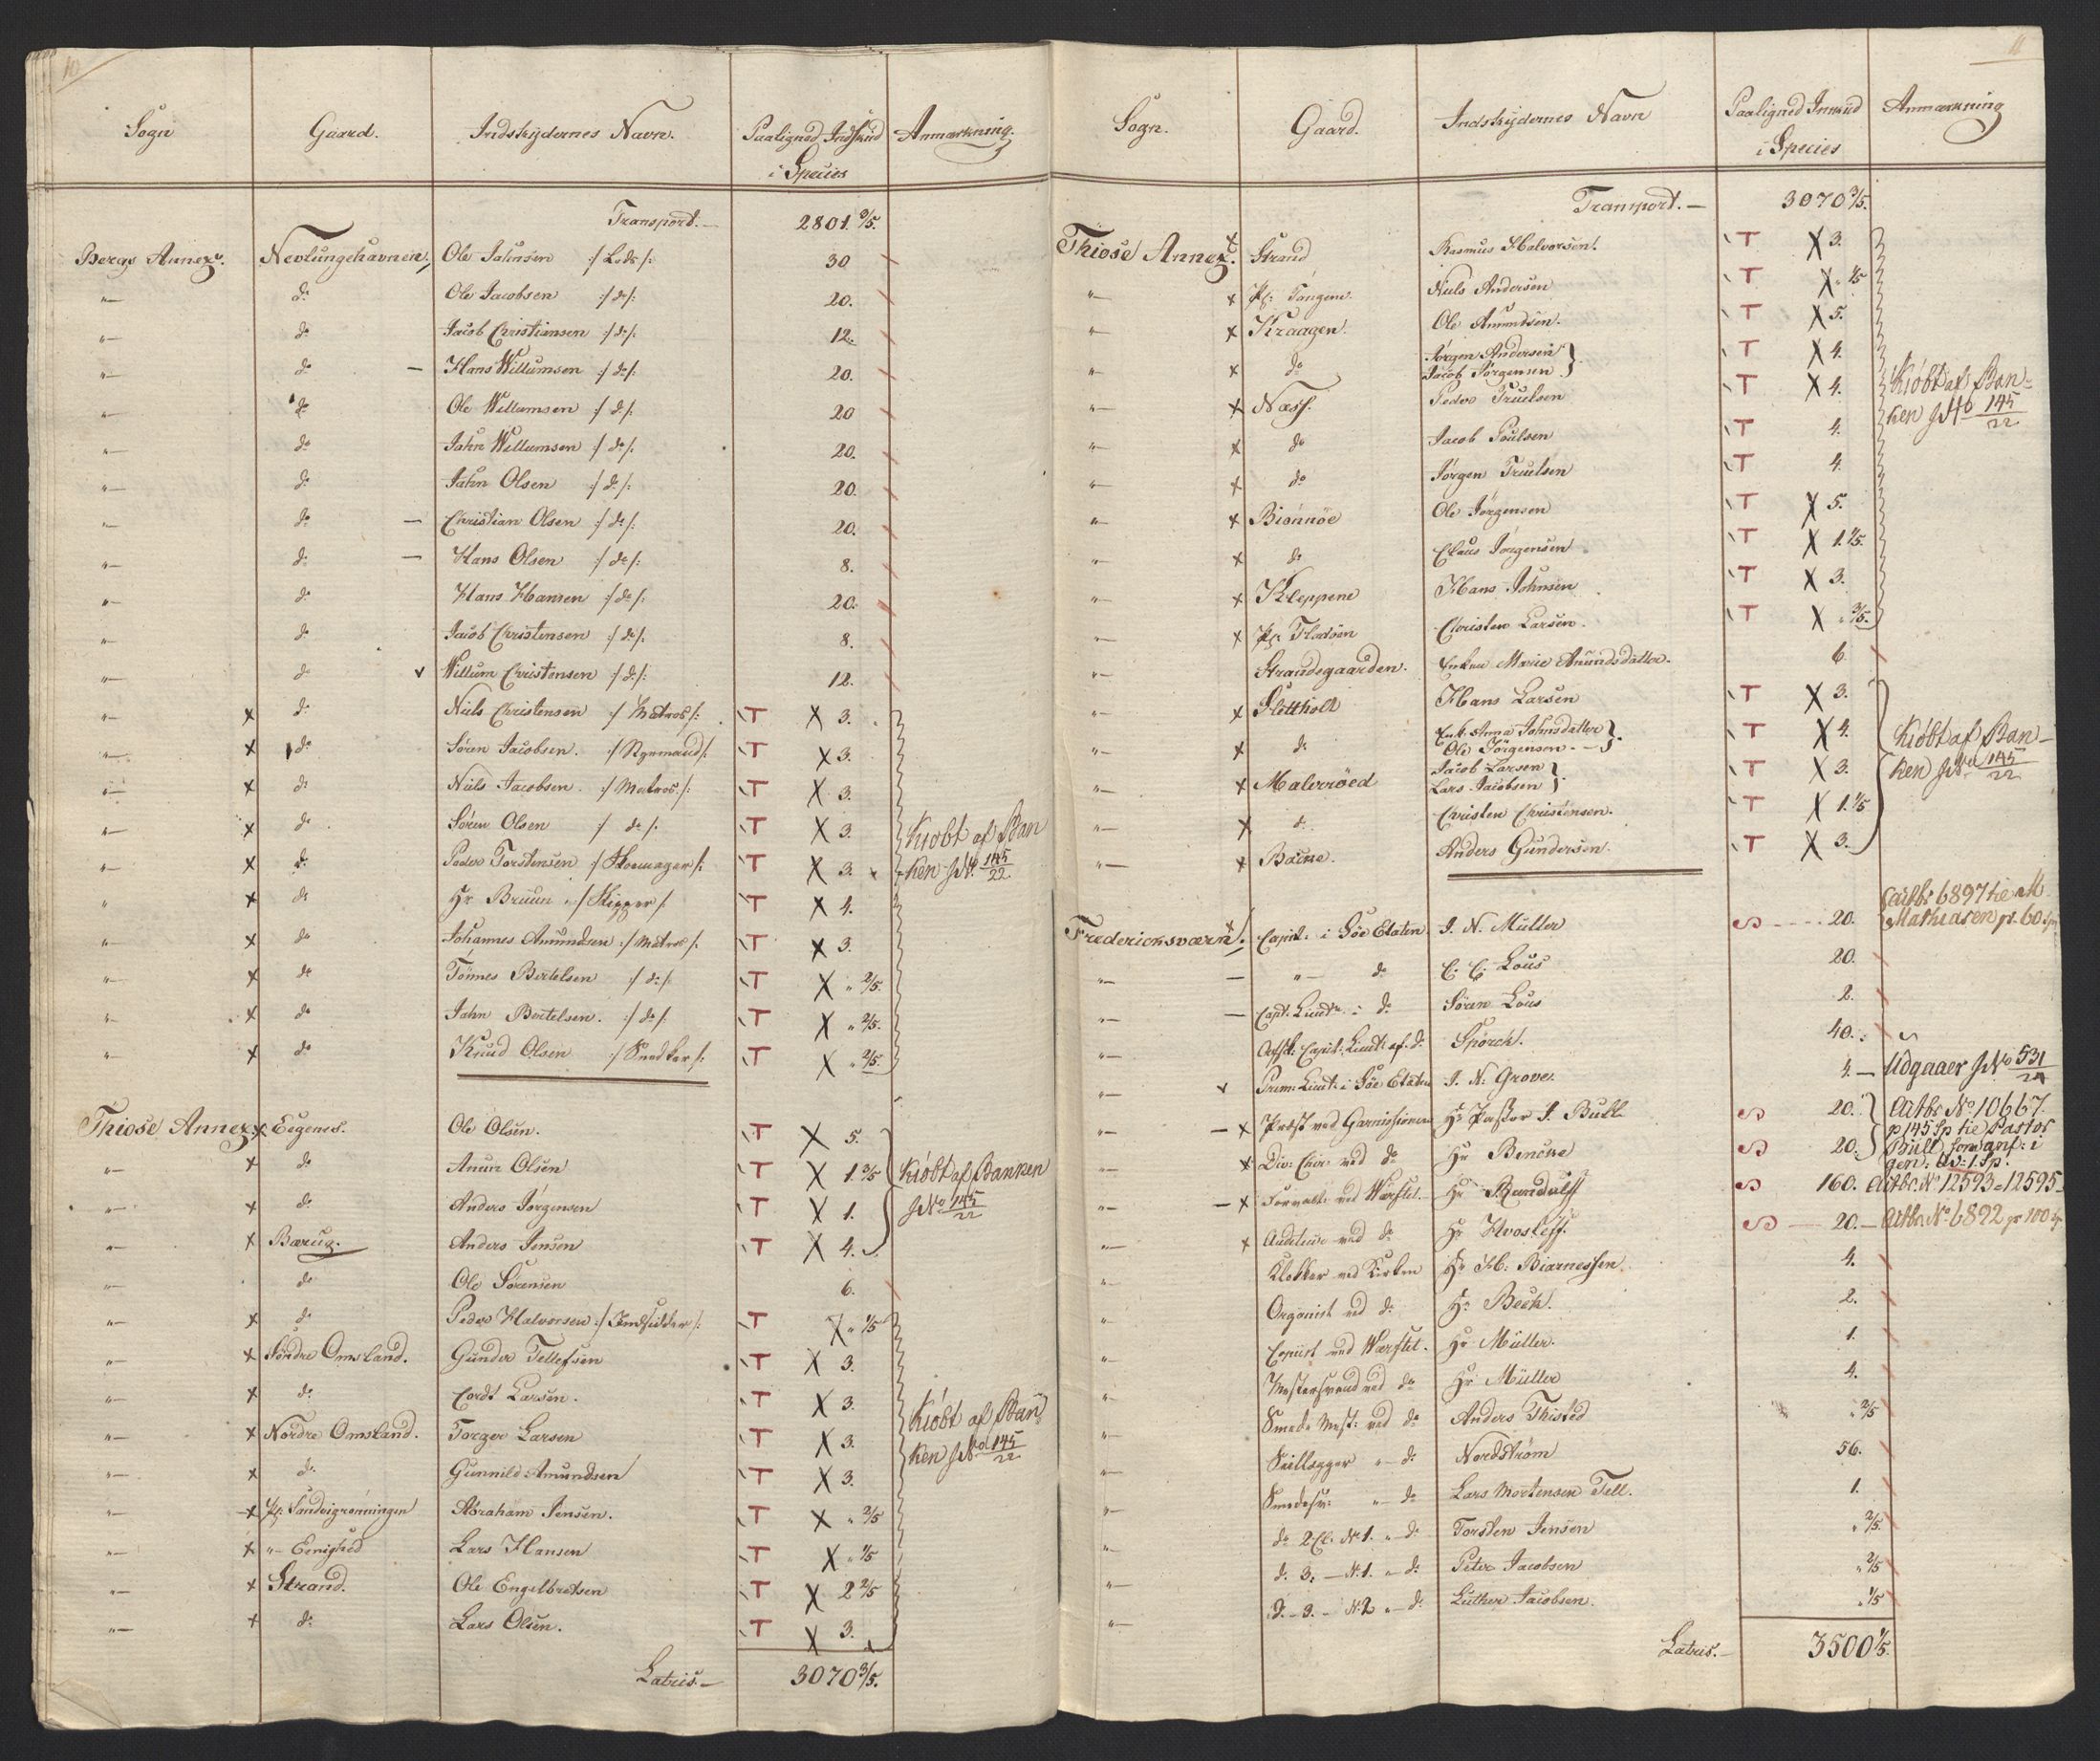 10
Sogn	Gaard.	Indskydernes Navn.	Paaligned Indskud i Species	Anmærkning.
Transport.— 2801 3/5.
Bergs Annex.	Nevlunghavnen,	Ole Jahnsen :/ Lods /:	30
"—	do	Ole Jacobsen :/ do /:	20.
"—	do	Jacob Christiansen :/ do /:	12.
"—	do —	Hans Willumsen :/ do /:	20.
"—	do	Ole Willumsen :/ do /:	20
"—	do	Jahn Willumsen :/ do /:	20.
"—	do	Jahn Olsen :/ do /:	20.
"—	do —	Christian Olsen :/ do /:	20.
"—	do —	Hans Olsen :/ do /:	8.
"—	do	Hans Hansen :/ do /:	20.
"—	do	Jacob Christensen :/ do /:	8.
"—	do	Willum Christensen :/ do /:	12.
"— x	do	Niels Christensen :/ Matros /:	T X 3.
"— x	do	Søren Jacobsen. :/ Styrmand /:	T X 3.
"— x	do	Niels Jacobsen. :/ Matros /:	T X 3.
"— x	do	Søren Olsen :/ do /:	T X 3.	Kiøbt af Ban
"— x	do	Peder Torstensen :/ Skomager /:	T X 3.	ken J No 145/22.
" x	do	Hr Bruun :/ Skipper /:	T X 4.
"— x	do	Johannes Amundsen :/ Matros /:	T X 3.
"— x	do	Tønnes Bertelsen :/ do /:	T X " 2/5.
"— x	do	Jahn Bertelsen. :/ do /:	T X " 2/5.
"— x	do	Knud Olsen :/ Snedker /:	T X " 2/5.
Thiose Annex x	Eegenes.	Ole Olsen.	T X 5.
"— x	do	Anun Olsen	T X 1 3/5	Kiøbt af Banken
"— x	do	Anders Jørgensen	T X 1.	J No 145/22
"— x	Bærug.	Anders Jensen	T X 4.
"—	do	Ole Sørensen	6.
"— x	do	Peder Halvorsen :/ Indsidder /:	T X " 1/5
"— x	Søndre Omsland.	Gunder Tellefsen	T X 3.
"— x	do	Cordt Larsen.	T X 3.	Kiøbt af Ban
"— x	Nordre Omsland.	Torger Larsen	T X 3.	ken J No 145/22
"— x	do	Gunnild Amundsen	T X 3.
"— x	Pl: Sandvigrønningen	Abraham Jensen.	T X " 2/5
"— x	"— Eenighed	Lars Hansen	T X " 1/5
"— x	Strand.	Ole Engelbretsen	T X 2 2/5
"— x	do	Lars Olsen.	T X 3.
Lateris.— 3070 3/5.
11
Sogn.	Gaard.	Indskydernes Navn	Paaligned Indskud i Species	Anmærkning
Transport.— 3070 3/5.
Thiose Annex. x	Strand	Rasmus Halvorsen.	T X 3.
"— x	Pl: Tangene.	Niels Andersen	T X " 1/5
"— x	Kraagen.	Ole Amundsen.	T X 5.
"— x	do	Jørgen Andersen
Jacob Jørgensen }.	T X 4.
"— x	Næss.	Peder Truelsen	T X 4.	Kiøbt af Ban-
ken J No 145/22
"— x	do	Jacob Poulsen	T 4.
"— x	do	Jørgen Truelsen	T 4.
"— x	Biønnøe	Ole Jørgensen	T X 5.
"— x	do	Claus Jørgensen	T X 1 2/5.
"— x	Kleppene	Hans Johnsen	T X 3.
"— x	Pl: Flodsen	Christen Larsen.	T X " 3/5.
"—	Strandsgaarden.	Enken Marie Anundsdatter.	6
"— x	Slettholt	Hans Larsen	T X 3.
"— x	do	Enk: Anna Johnsdatter
Ole Jørgensen - - }.	T X 4.	Kiøbt af Ban-
"— x	Malerrøed	Jacob Larsen
Lars Jacobsen }.	T X 3.	ken J No 145/22
"— x	do	Christen Christensen.	T X 1. 1/5
"— x	Backe.	Anders Gundersen.	T X 3.
Frederiksværn. x	Capit: i Søe Etaten	J. N. Müller	20.	Actbr 6897 tie M
Mathiasen pr. 60 Sp
"— —	"— do	C. C. Lous	20.
"— —	Capt. Lieutn. i do	Søren Lous	2.
"—	Afsk: Capit: Lieut: af do	Spörck.	40.
"— x	Prem: Lieut: i Søe Etaten	J. N. Grove.	4. —	Udgaaer J No 531/24
"— — x	Præst ved Garnissionen	Hr Pastor J. Bull	20.	Actbr No 10667.
p 145 Sp tie Pastor
"— x	Div: Chir: ved do	Hr Bencke	20.	Bull, som anf: i
gen: Av: 1. Sp.
"— — x	Forvalt: ved Værftet	Hr Randulff	160.	Actbr. No 12593 = 12595
"— x	Auditeur ved do	Hr Hvoslef.	20.—	Actbr No 6892 pr 100 Sp
"—	Klokker ved Kirken	Hr H: Biarnessen	4.
"	Organist ved do	Hr Beck.	2.
"—	Copiist ved Værftet.	Hr Müller.	1.
"—	Mestersvend ved do	Hr Müller	4.
"—	Smede Mest: ved do	Anders Thisted	" 2/5
"—	Seillægger "— do	Nordstrøm	56.
"—	Smedesv: "— do	Lars Mortensen Tell.	1.
"—	do 2 Cl. No 1. "— do	Torsten Jensen	" 2/5.
"—	do 3. — No 1. "— do	Peter Jacobsen	" 2/5
"—	do — 3. — No 2 "— do	Luther Jacobsen.	" 1/5
Lateris.— 3500 1/5.